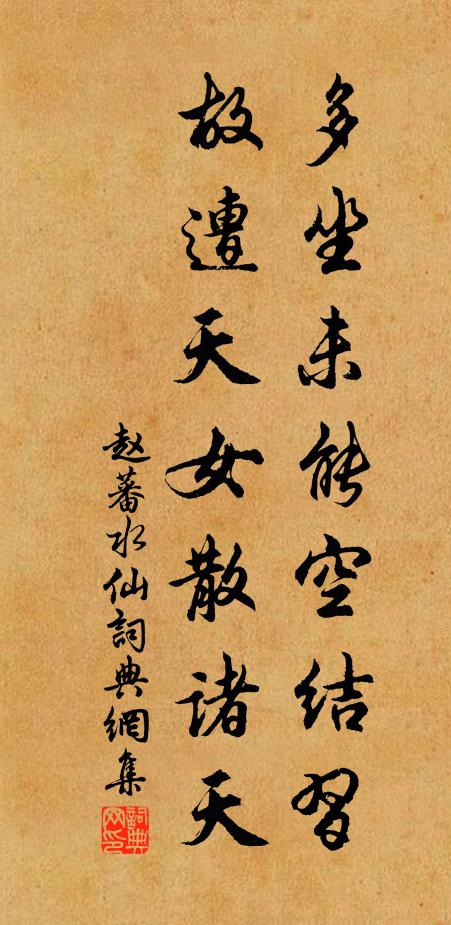 多坐未能空结習
故遭天女散诸天
赵蕃水仙詞典網集
詞典网印